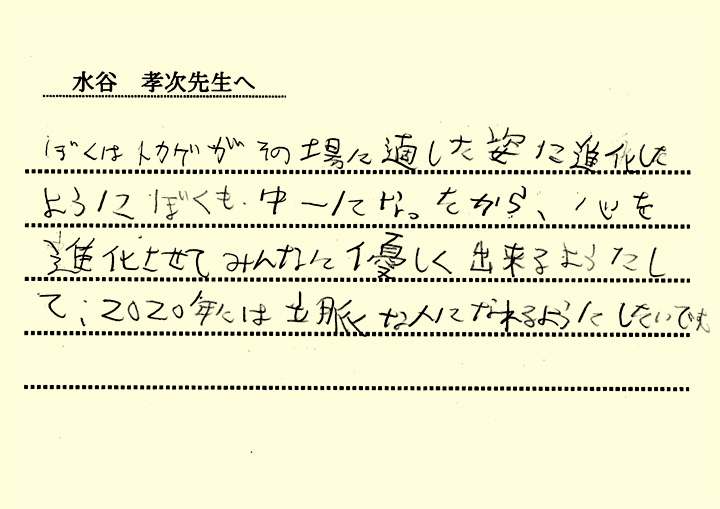 水谷 孝次先生へ
ぼくはトカゲがその場に適した姿に進化した
ようにぼくも中一になったから、心を
進化させてみんなに優しく出来るようにし
て、2020年には立脈な人になれるようにしたいです